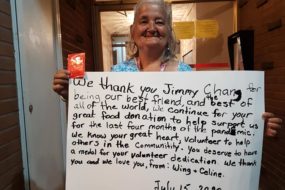 We thank you Jimmy Chang for
being our best friend, and best of
all of the world, we continue for your
great food donation to help support us
for the last four months of the pandemic.
We know your great heart, volunteer to help
others in the Community. You deserve to have
a medal for your volunteer dedication. We thank
you and we love you, from: Wing & Celine.
July 15, 2020